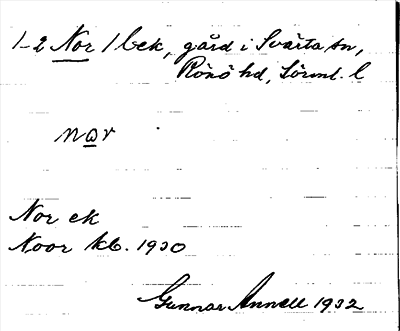 1-2 Nor /bek, gård i Svärta sn,
Rönö hd, Sörml. l
nor
Nor ek
Noor kb. 1930
Gunnar Annell 1932